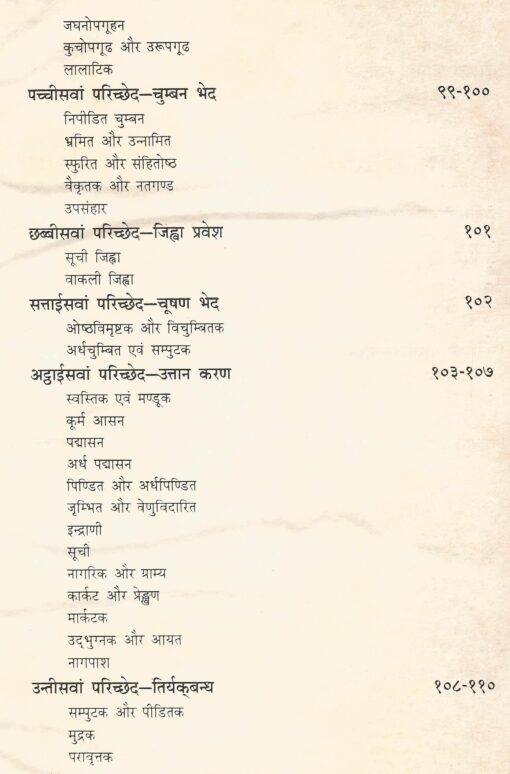 जघनोपगूहन
कुचोपगूढ और उरूपगूढ
लालाटिक
पच्चीसवां परिच्छेद—चुम्बन भेद ९९-१००
निपीडित चुम्बन
भ्रमित और उन्नामित
स्फुरित और संहितोष्ठ
वैकृतक और नतगण्ड
उपसंहार
छब्बीसवां परिच्छेद—जिह्वा प्रवेश १०१
सूची जिह्वा
वाकली जिह्वा
सत्ताईसवां परिच्छेद—चूषण भेद १०२
ओष्ठविमृष्टक और विचुम्बितक
अर्धचुम्बित एवं सम्पुटक
अट्ठाईसवां परिच्छेद—उत्तान करण १०३-१०७
स्वस्तिक एवं मण्डूक
कूर्म आसन
पद्मासन
अर्ध पद्मासन
पिण्डित और अर्धपिण्डित
जृम्भित और वेणुविदारित
इन्द्राणी
सूची
नागरिक और ग्राम्य
कार्कट और प्रेङ्खण
मार्कटक
उद्भुग्नक और आयत
नागपाश
उन्तीसवां परिच्छेद—तिर्यक्बन्ध १०८-११०
सम्पुटक और पीडितक
मुद्रक
परावृत्तक